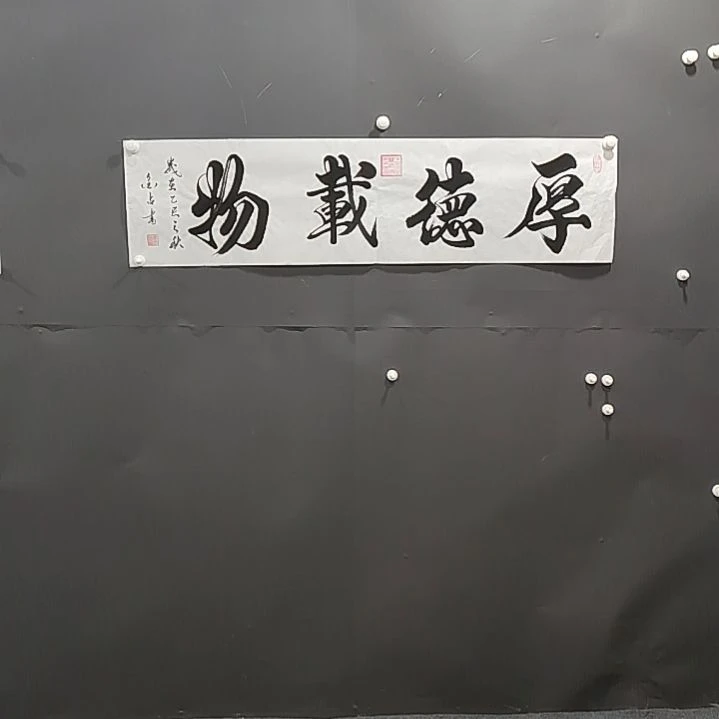 厚德載物
歲在乙巳之秋